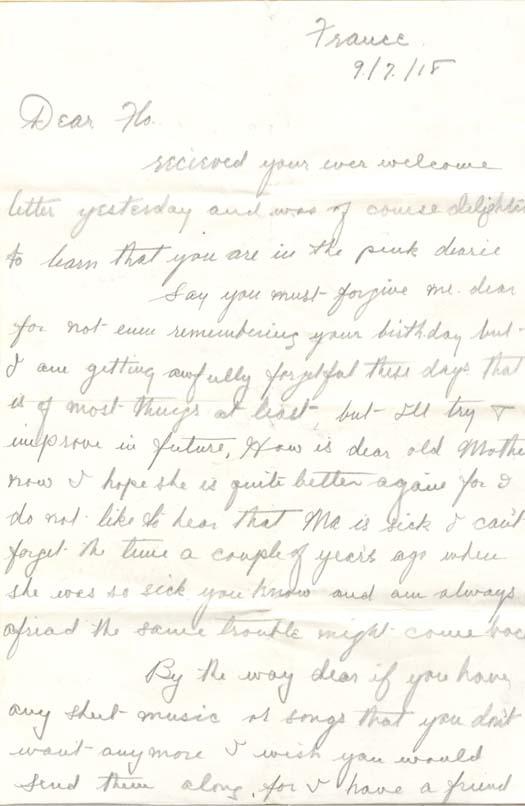 France
9/7/18
Dear Flo.
recieved your ever welcome
letter yesterday and was of course delighte
to learn that you are in the pink dearie
Say you must forgive me dear
for not even remembering your birthday but
I am getting awfully forgetful these days that
is of most things at least, but I'll try &
improve in future. How is dear old Mothe
now I hope she is quite better again for I
do not like to hear that Ma is sick I can't
forget the time a couple of years ago when
she was so sick you know and am always
afriad the same trouble might come bac
By the way dear if you have
any sheet music or songs that you don't
want anymore I wish you would
send them along, for I have a friend